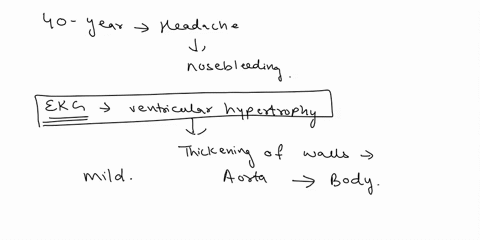 40-year → Headache
↓
nosebleeding.
EKG → ventricular hypertrophy
↓
Thickening of walls →
mild. Aorta → Body.